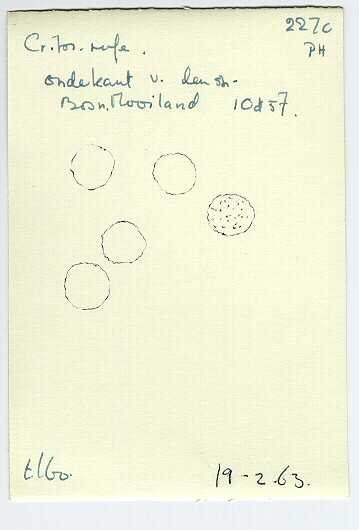 227c
PH
Cr. tor. rufe.
onderkant v. den
Bosn. Mooiland 10 d 57.
19-2.63.